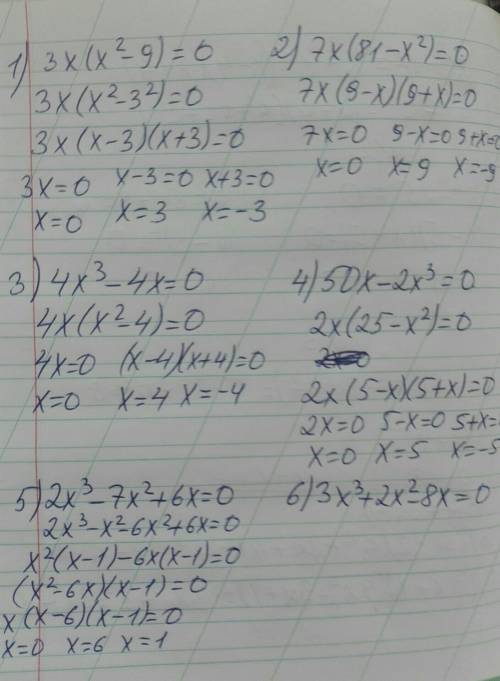 1) 3x(x²-9)=0
3x(x²-3²)=0
3x(x-3)(x+3)=0
3x=0 x-3=0 x+3=0
x=0 x=3 x=-3
2) 7x(81-x²)=0
7x(9-x)(9+x)=0
7x=0 9-x=0 9+x=0
x=0 x=9 x=-9
3) 4x³-4x=0
4x(x²-4)=0
4x=0 (x-4)(x+4)=0
x=0 x=4 x=-4
4) 50x-2x³=0
2x(25-x²)=0
2x(5-x)(5+x)=0
2x=0 5-x=0 5+x=
x=0 x=5 x=-5
5) 2x³-7x²+6x=0
2x³-x²-6x²+6x=0
x²(x-1)-6x(x-1)=0
(x²-6x)(x-1)=0
x(x-6)(x-1)=0
x=0 x=6 x=1
6) 3x³+2x²-8x=0